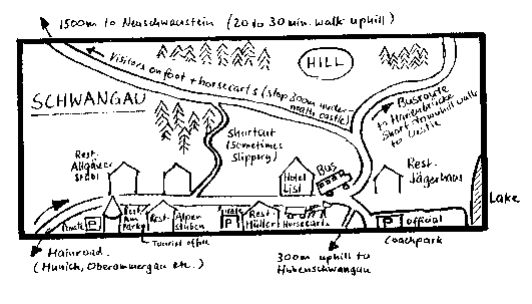 1500m to Neuschwanstein (20 to 30 min. walk uphill)
Visitors on foot + horsecarts (stop 300m under-
neath castle)
HILL
SCHWANGAU
Shortcut
(Sometimes
Slippery)
Busroute
to Marienbrücke
Short downhill walk
to Castle
Rest.
Allgäuer
Stüberl
Hotel
Lisl
Bus
Rest.
Jägerhaus
Lake
Private P
Rest.
Am
Park
Rest.
Alpen
stuben
Tourist office
P
Rest.
Müller
Horsecarts
P official
Coachpark
Mainroad
(Munich, Oberammergau etc.)
300m uphill to
Hohenschwangau